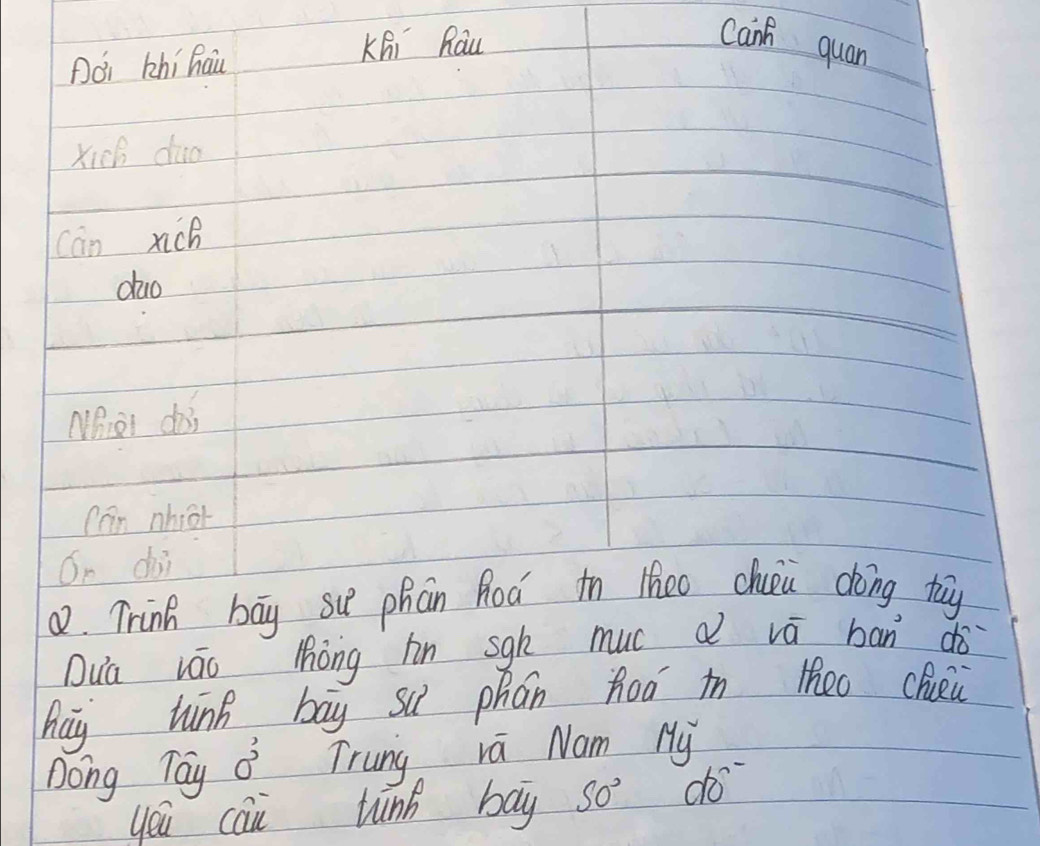 Đới khí hậu Khí hậu Cảnh quan
Xích đạo
Cận xích
đạo
Nhiệt đới
Cận nhiệt
Ôn đới
2. Trình bày sự phân hoá tn theo chiều đông tây
Dựa vào thông tin sgk mục 2 và bản đồ
hãy trình bày sự phân hoá tn theo chiều
Đông Tây ở Trung và Nam Mỹ
yêu cầu trình bày sơ đồ